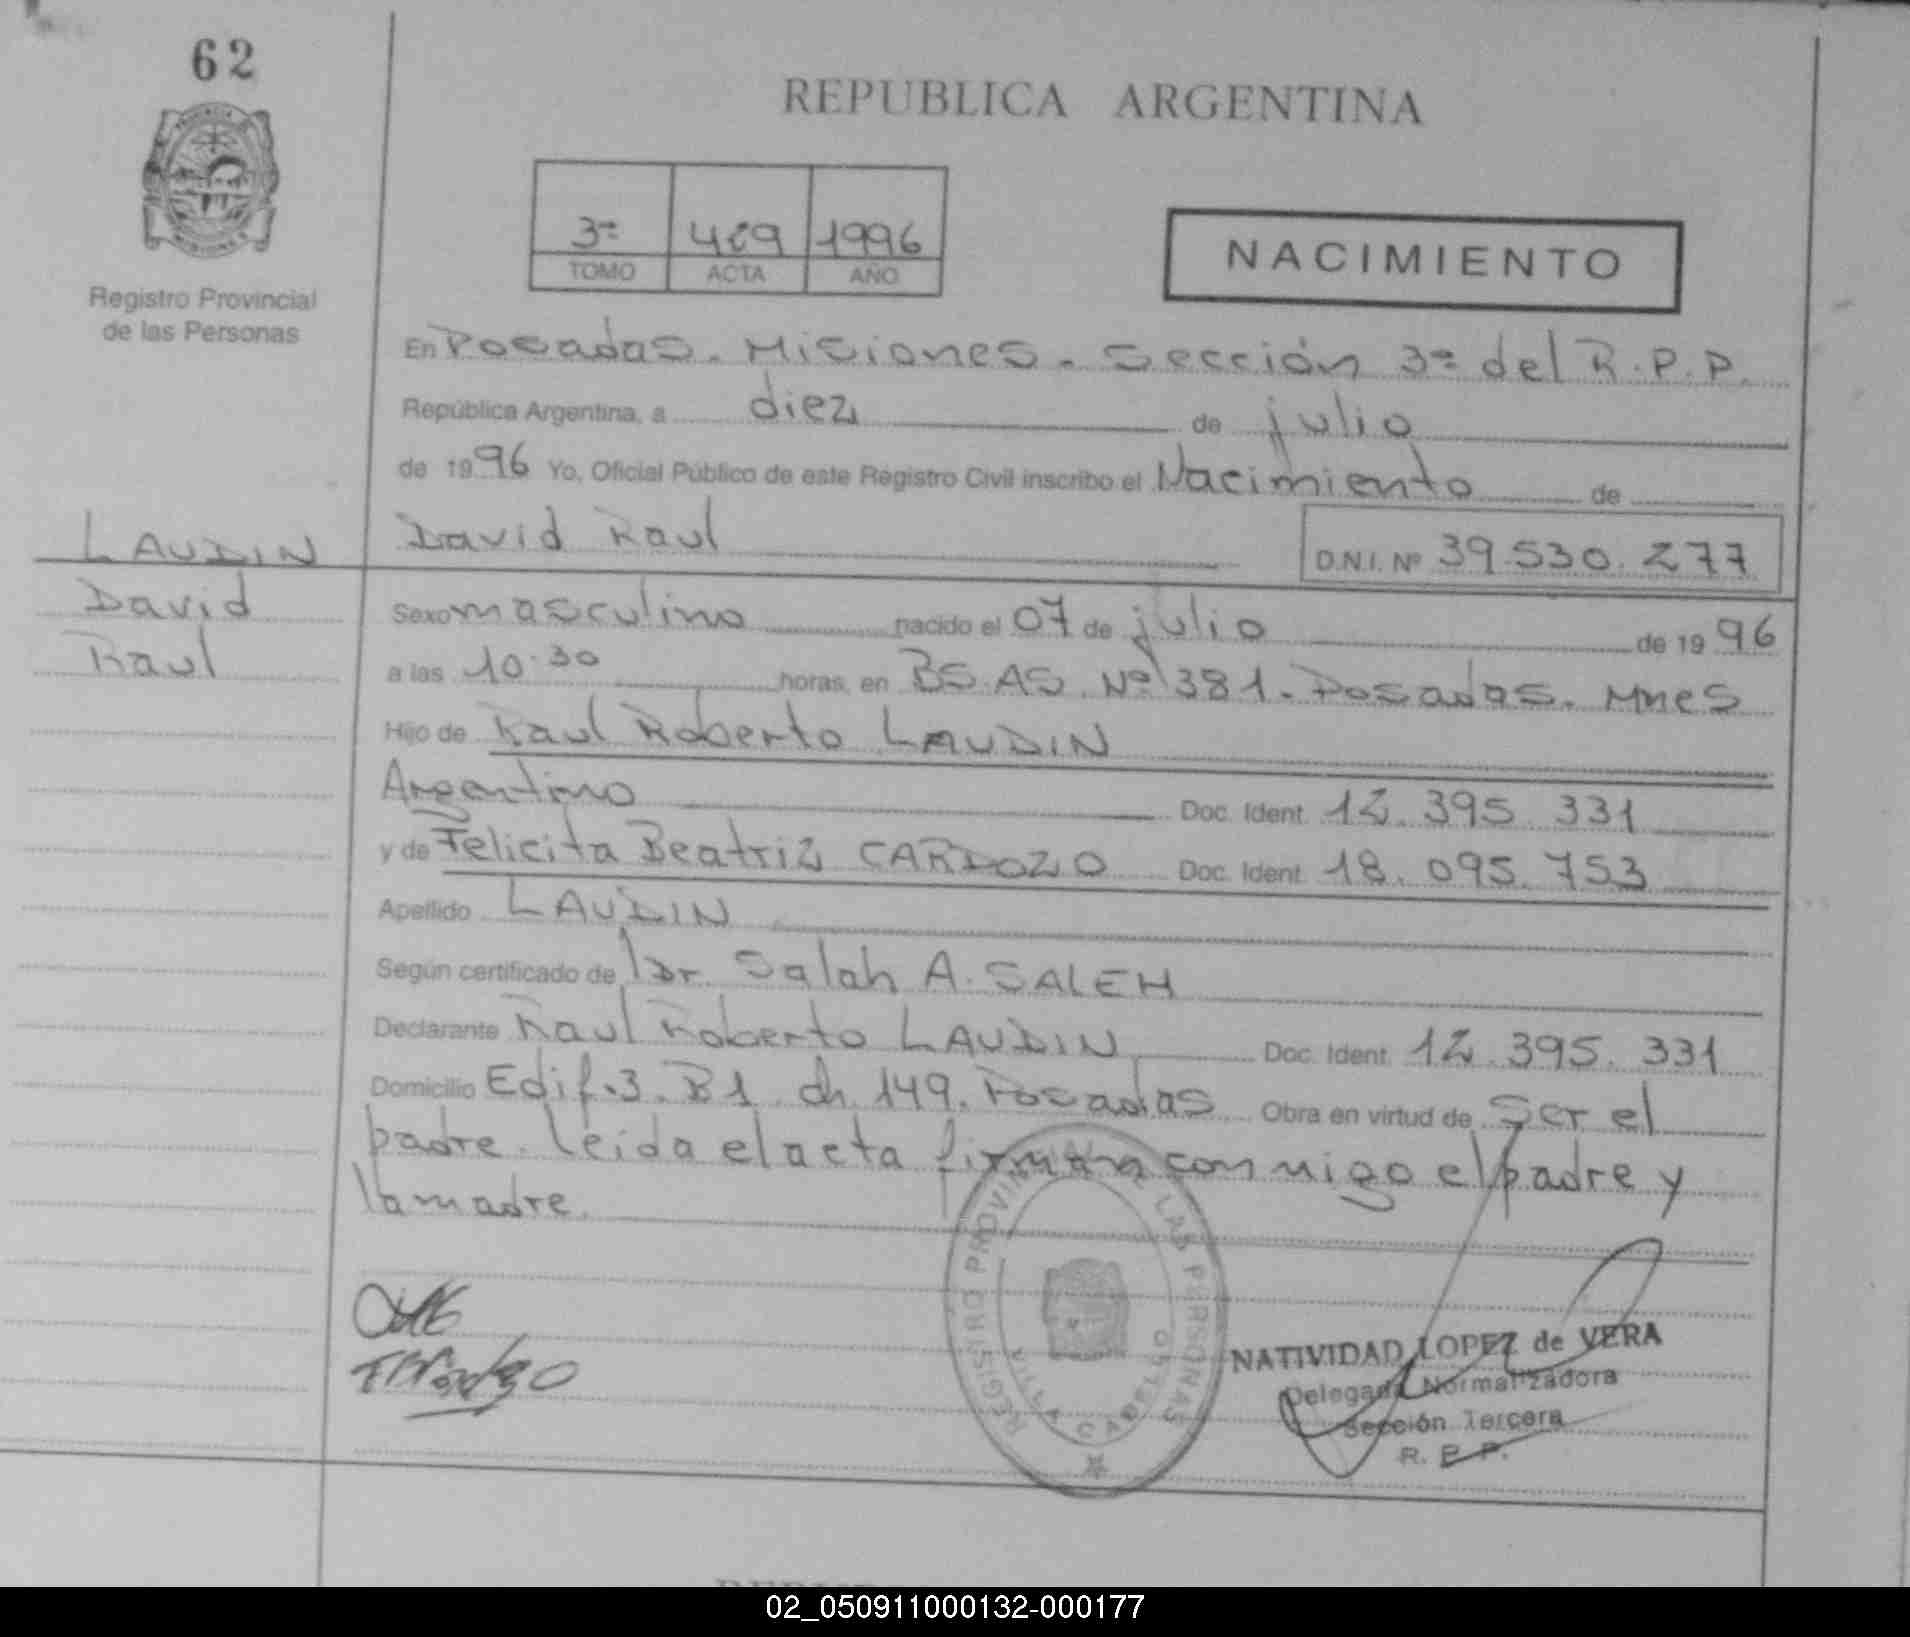 62
REPUBLICA ARGENTINA
3ª 419 1996
TOMO ACTA AÑO
NACIMIENTO
Registro Provincial
de las Personas
En Posadas. Misiones. Sección 3ª del R.P.P.
República Argentina, a diez de julio
de 1996 Yo, Oficial Público de este Registro Civil inscribo el Nacimiento de
LAUDIN David Raul D.N.I. Nº 39.530.277
David
Raul
Sexo masculino nacido el 07 de julio de 1996
a las 10.30 horas, en BS.AS. Nº 381. Posadas. Mnes
Hijo de Raul Roberto LAUDIN
Argentino Doc. Ident. 12.395.331
y de Felicita Beatriz CARDOZO Doc. Ident. 18.095.753
Apellido LAUDIN
Según certificado de Dr. Salah A. SALEH
Declarante Raul Roberto LAUDIN Doc. Ident. 12.395.331
Domicilio Edif.3. B1 ch 149. Posadas Obra en virtud de Ser el
padre. leida el acta firman conmigo el padre y
la madre.
REGISTRO PROVINCIAL DE LAS PERSONAS
VILLA CABELLO
NATIVIDAD LOPEZ de VERA
Delegada Normalizadora
Sección Tercera
R. P. P.
02_050911000132-000177